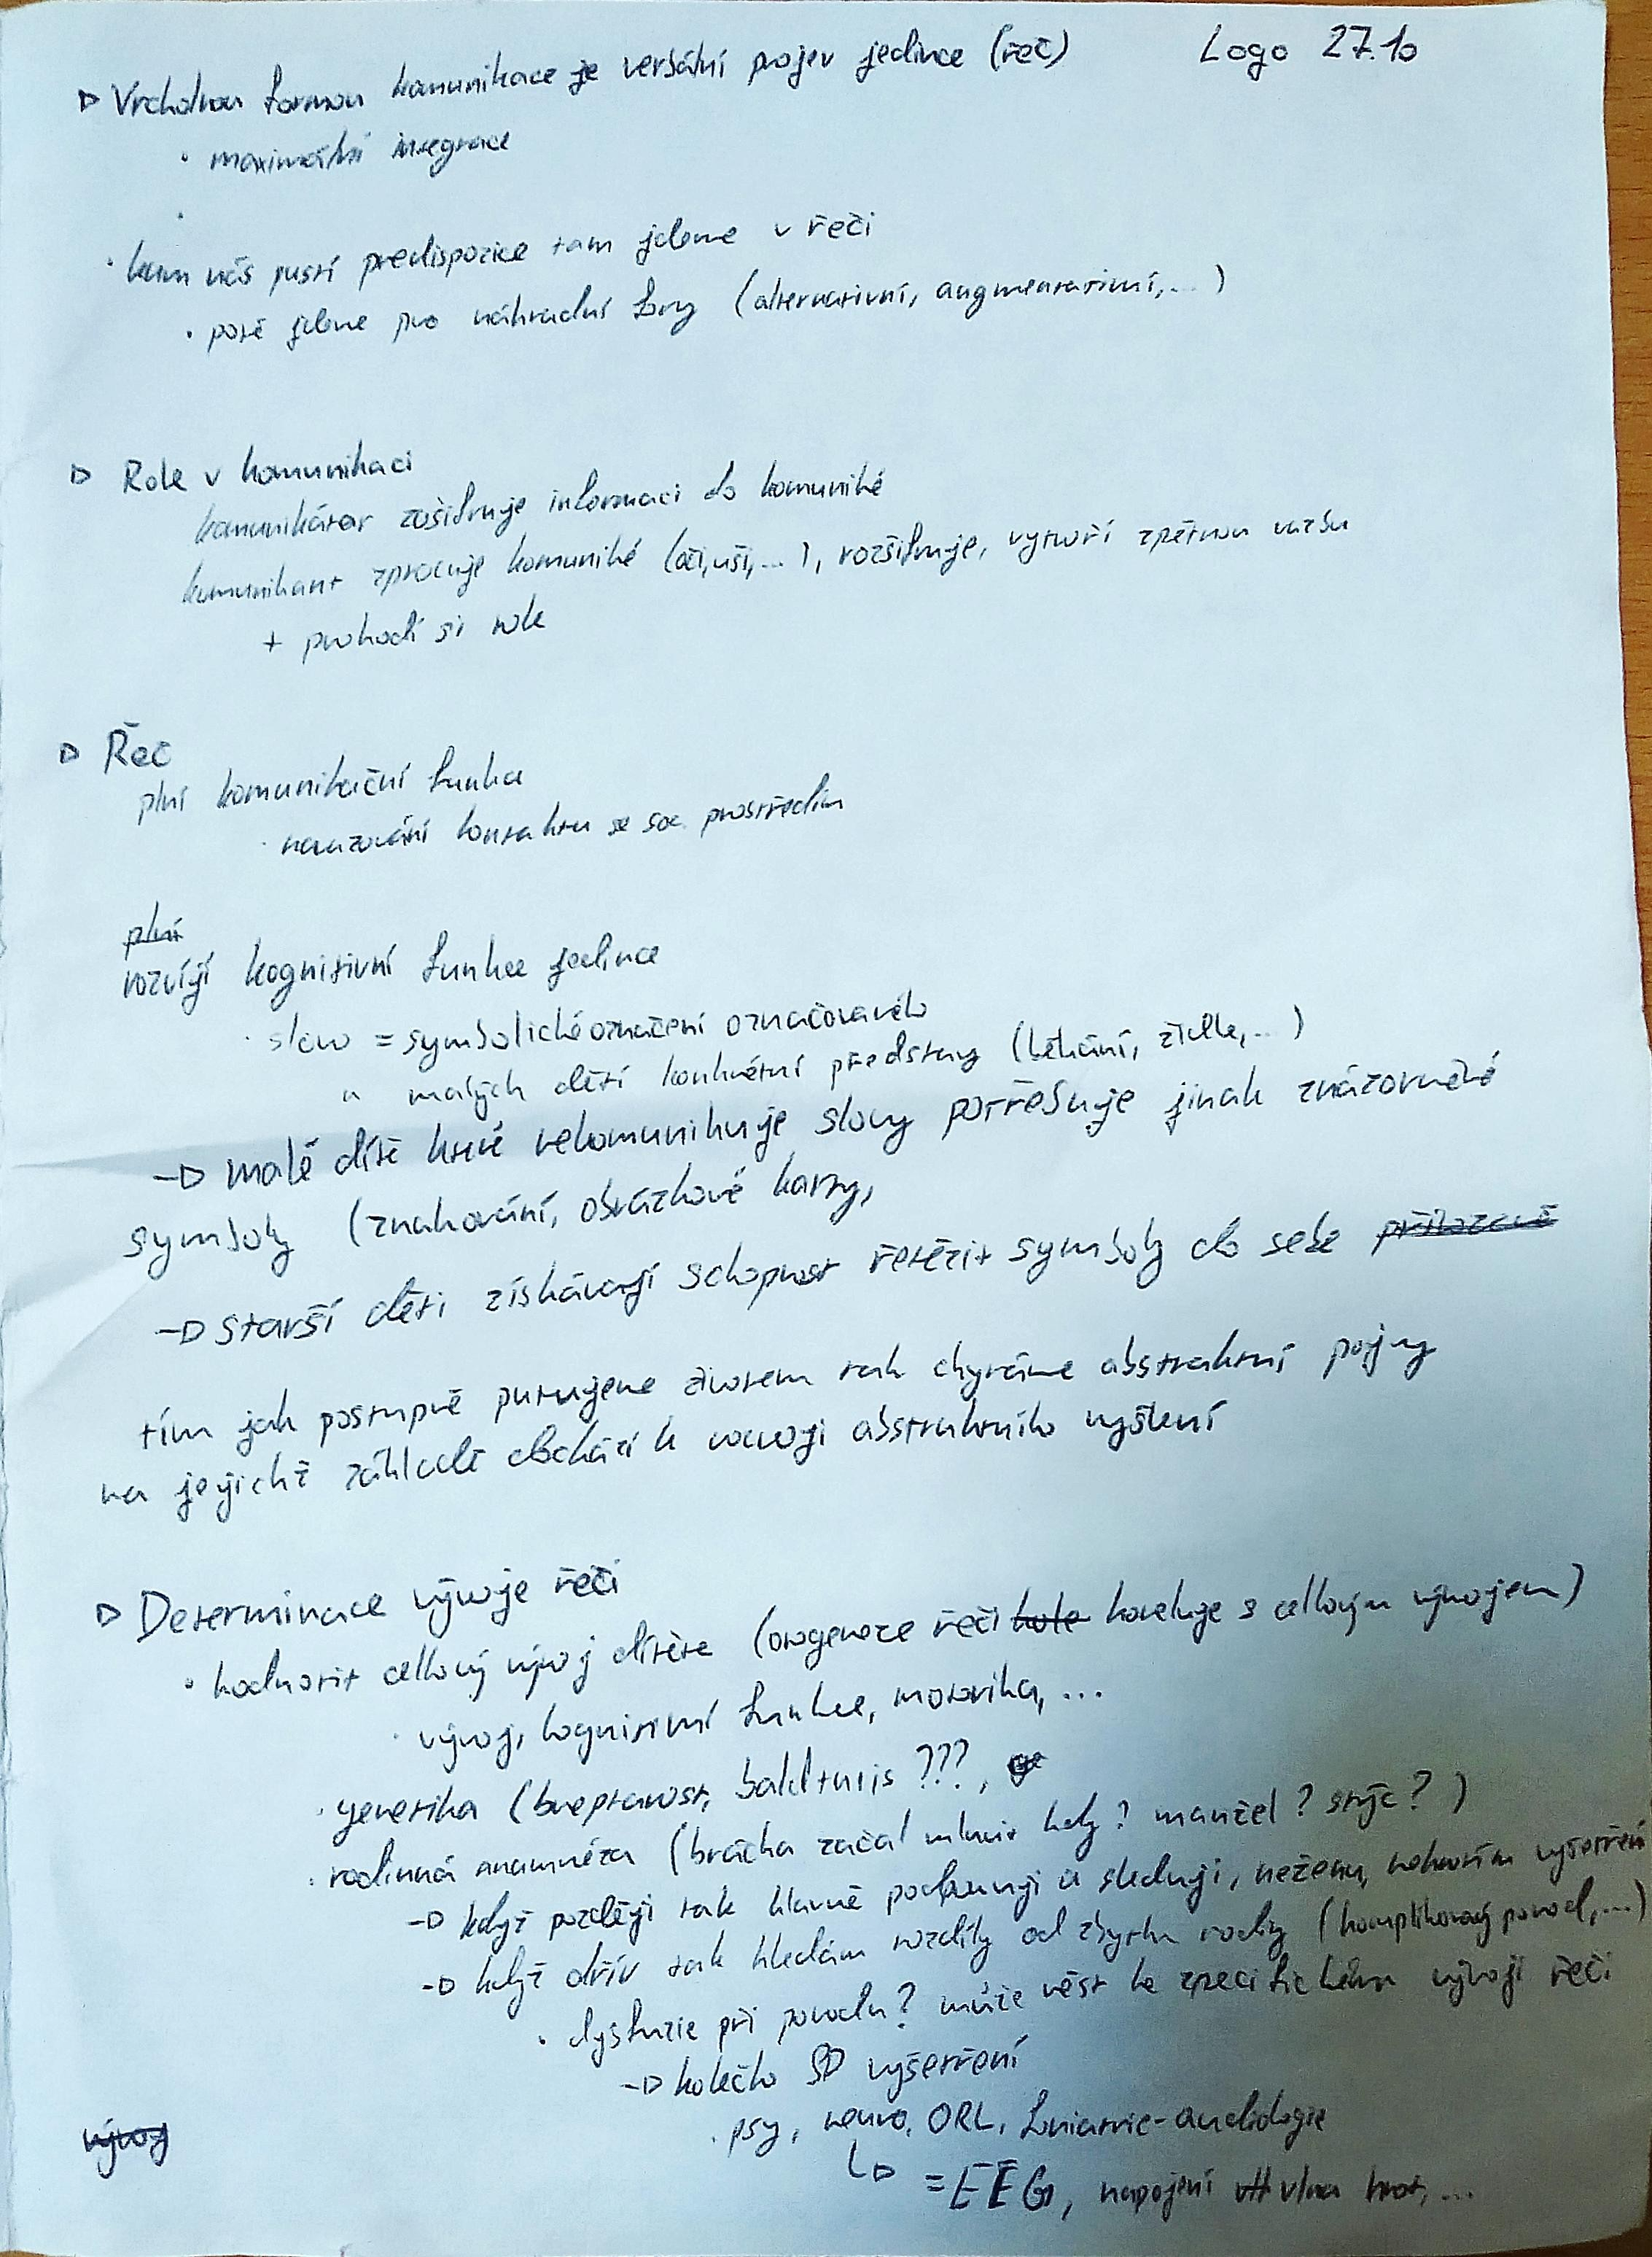 Logo 27.10
▷ Vrcholnou formou komunikace je verbální projev jedince (řeč)
· maximální integrace
·
· kam nás pustí predispozice tam jdeme v řeči
· poté jdeme pro náhradní fory (alternativní, augmentativní,...)
▷ Role v komunikaci
komunikátor zašifruje informaci do komuniké
komunikant zpracuje komuniké (oči,uši,...), rozšifruje, vytvoří zpětnou vazbu
+ prohodí si role
▷ Řeč
plní komunikační funkci
· navazování kontaktu se soc. prostředím
plní
rozvíjí kognitivní funkce jedince
· slovo = symbolické označení označovaného
u malých dětí konkrétní představy (běhání, židle,...)
–▷ malé dítě které nekomunikuje slovy potřebuje jinak znázorněné
symboly (znakování, obrázkové karty,
–▷ starší děti získávají schopnost řetězit symboly do sebe přirozeně
tím jak postupně putujeme životem tak chytáme abstraktní pojmy
na jejichž základě dochází k rozvoji abstraktního myšlení
▷ Determinace vývoje řeči
· hodnotit celkový vývoj dítěte (ontogeneze řeči koreluje s celkovým vývojem)
· vývoj, kognitivní funkce, motorika, ...
· genetika ( ???,
· rodinná anamnéza (brácha začal mluvit kdy? manžel? strýc?)
–▷ když později tak hlavně podporuji a sleduji, neženu, nehrotím vyšetření
–▷ když dřív tak hledám rozdíly od zbytku rodiny (komplikovaný porod,...)
· dysfuzie při porodu? může vést ke specifickému vývoji řeči
–▷ kolečko vyšetření
· psy, neuro, ORL, foniatrie-audiologie
↳ = EEG, napojení vlna hrot, ...
vývoj